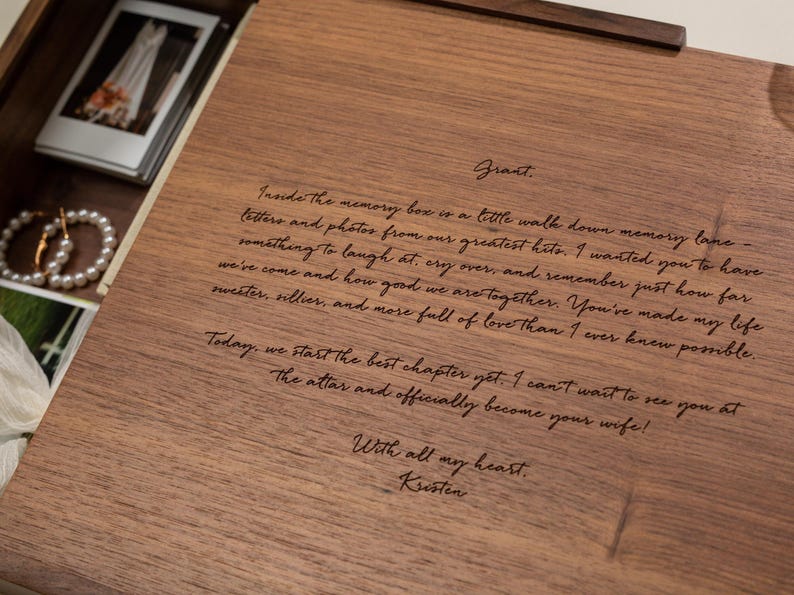 Grant,
Inside the memory box is a little walk down memory lane -
letters and photos from our greatest hits. I wanted you to have
something to laugh at, cry over, and remember just how far
we've come and how good we are together. You've made my life
sweeter, sillier, and more full of love than I ever knew possible.
Today, we start the best chapter yet. I can't wait to see you at
the altar and officially become your wife!
With all my heart,
Kristen